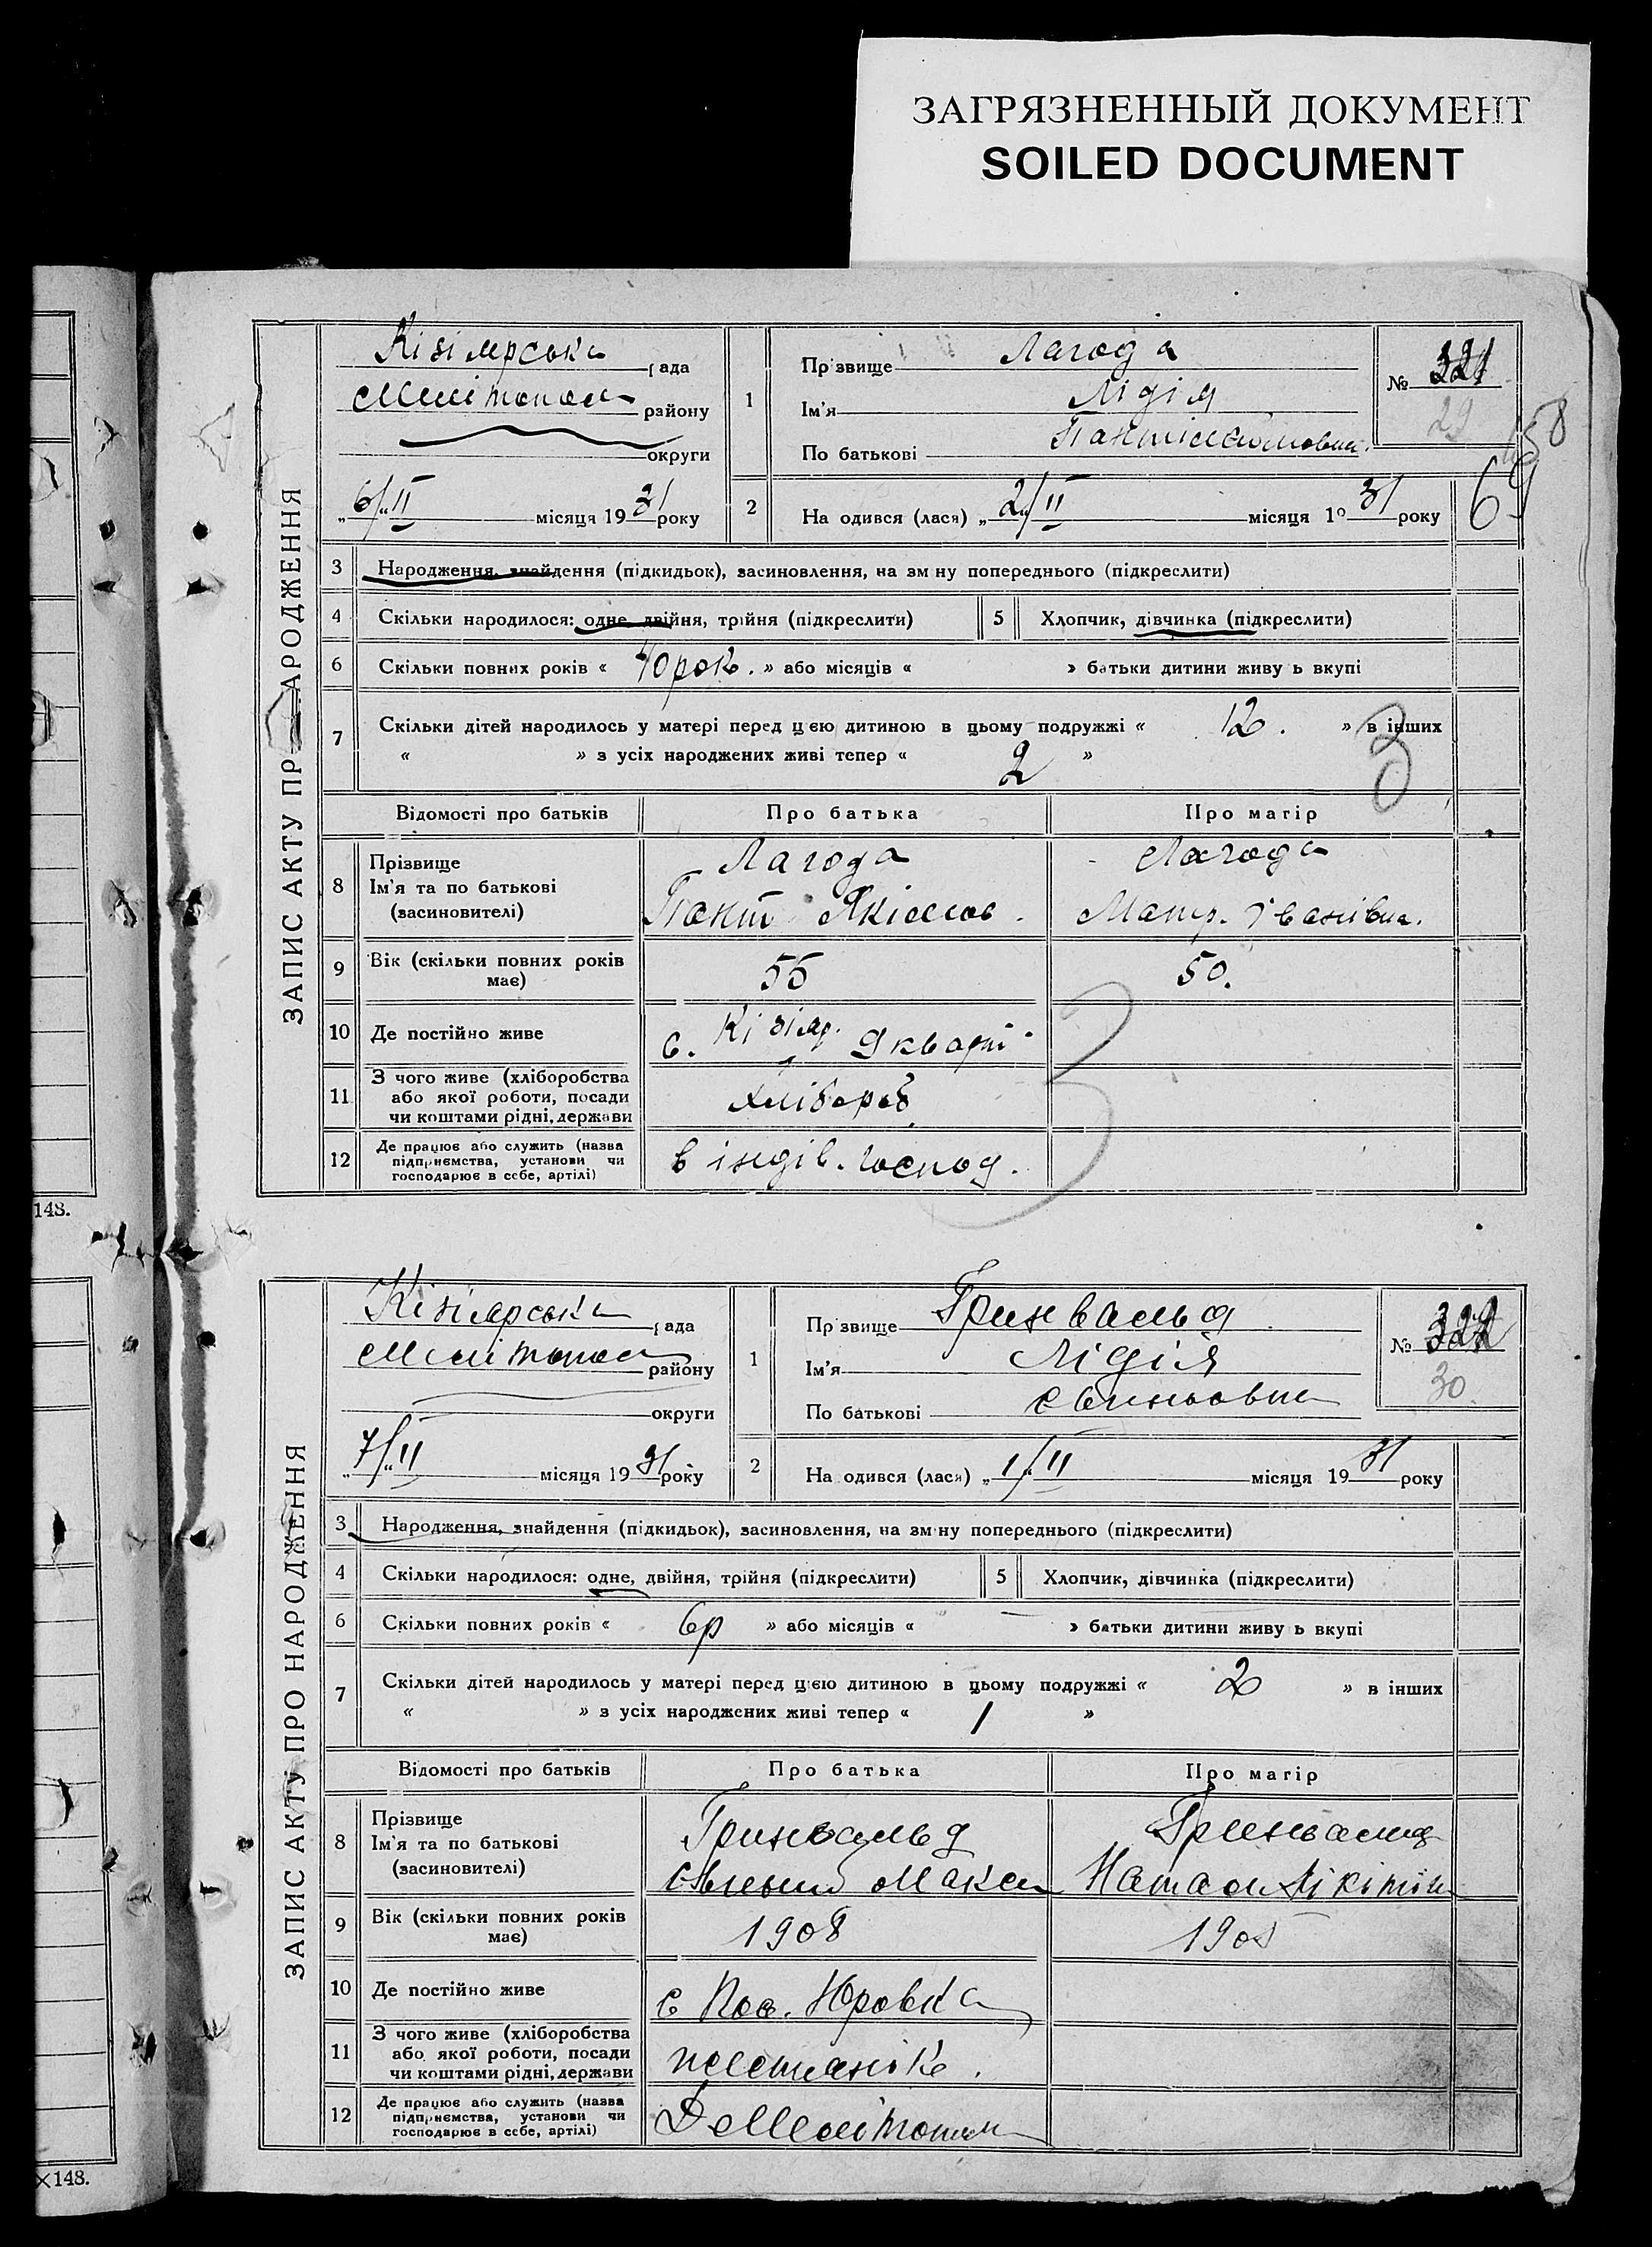 ЗАГРЯЗНЕННЫЙ ДОКУМЕНТ
SOILED DOCUMENT
58
69
ЗАПИС АКТУ ПРО НАРОДЖЕННЯ
Кізіярська рада
Мелітополь району
округи
„6/„ II місяця 1931 року
1
Прізвище Лагода
Ім'я Лідія
По батькові
№ 321
29
2
На одився (лася) „2/„ II місяця 1931 року
3 Народження, знайдення (підкидьок), засиновлення, на зм ну попереднього (підкреслити)
4 Скільки народилося: одне, двійня, трійня (підкреслити) 5 Хлопчик, дівчинка (підкреслити)
6 Скільки повних років « 40 рок. » або місяців « » батьки дитини живу ь вкупі
7 Скільки дітей народилось у матері перед цією дитиною в цьому подружжі « 12. » в інших
« » з усіх народжених живі тепер « 2 »
Відомості про батьків Про батька Про матір
8 Прізвище
Ім'я та по батькові
(засновителі)
Лагода
Пант Якімов.
Лагода
Матр. Іванівна.
9 Вік (скільки повних років має) 55 50.
10 Де постійно живе с. Кізіяр. 9 кварт.
11 З чого живе (хліборобства або якої роботи, посади чи коштами рідні, держави Хлібороб
12 Де працює або служить (назва підприємства, установи чи господарює в себе, артілі) в індів. господ.
148.
ЗАПИС АКТУ ПРО НАРОДЖЕННЯ
Кізіярська рада
Мелітополь району
округи
„7/„ II місяця 1931 року
1
Прізвище Гринвальд
Ім'я Лідія
По батькові
№ 322
30
2
На одився (лася) „1/„ II місяця 1931 року
3 Народження, знайдення (підкидьок), засиновлення, на зм ну попереднього (підкреслити)
4 Скільки народилося: одне, двійня, трійня (підкреслити) 5 Хлопчик, дівчинка (підкреслити)
6 Скільки повних років « 6р » або місяців « — » батьки дитини живу ь вкупі
7 Скільки дітей народилось у матері перед цією дитиною в цьому подружжі « 2 » в інших
« » з усіх народжених живі тепер « 1 »
Відомості про батьків Про батька Про матір
8 Прізвище
Ім'я та по батькові
(засновителі)
Гринвальд
Макси
Гринвальд
Натал Нікітін
9 Вік (скільки повних років має) 1908 1908
10 Де постійно живе с Юровка
11 З чого живе (хліборобства або якої роботи, посади чи коштами рідні, держави
12 Де працює або служить (назва підприємства, установи чи господарює в себе, артілі)
×148.